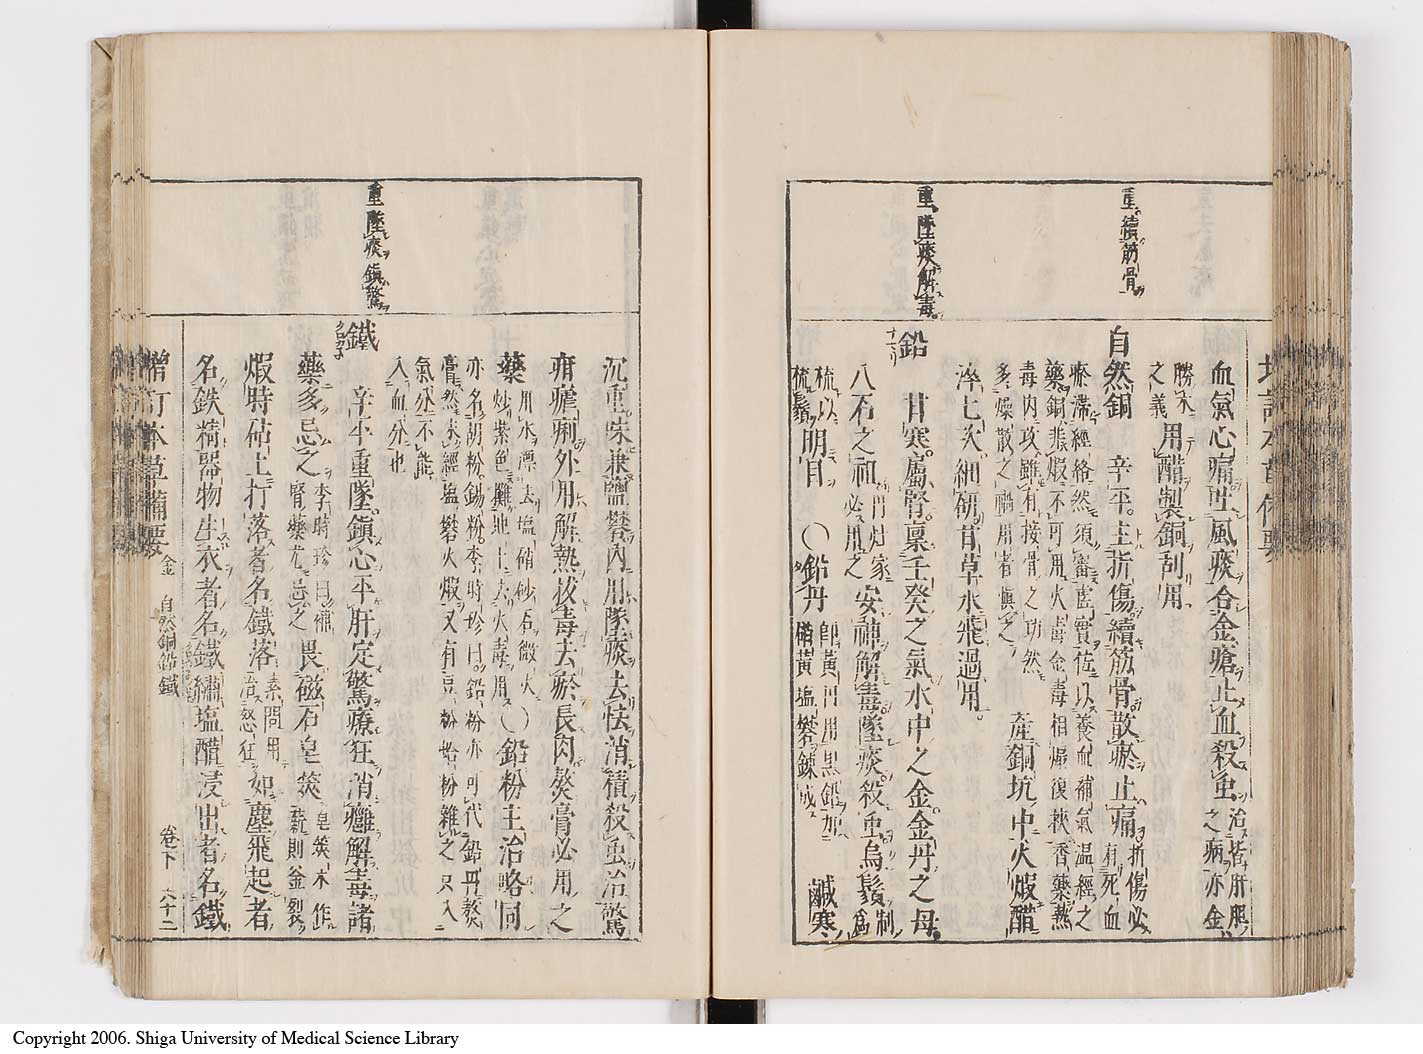 重續筋骨
重墜痰解毒
血氣心痛吐風痰合金瘡止血殺虫治皆肝膽之病亦金
勝木之義用醋製銅刮用
自然銅 辛平主折傷續筋骨散瘀止痛折傷必有死血
瘀滯經絡然須審虛實佐以養血補氣温經之
藥銅非煅不可用火毒金毒相煽復挾香藥熱
毒内攻雖有接骨之功然
多燥散之禍用者慎之 産銅坑中火煅醋
淬七次細研甘草水飛過用
鉛 甘寒屬腎稟壬癸之氣水中之金金丹之母
八石之祖丹竈家必用之安神解毒墜痰殺虫烏鬚制爲
梳以梳鬚明目○鉛丹即黄丹用黒鉛加硝黄塩礬錬成 鹹寒
重墜痰鎮驚
沉重味兼鹽礬内用墜痰去怯消積殺虫治驚
疳瘧痢外用解熱拔毒去瘀長肉熬膏必用之
藥用水漂去塩硝砂石微火炒紫色攤地上去火毒用○鉛粉主治略同
亦名胡粉錫粉李時珍曰鉛粉亦可代鉛丹熬
膏然未經塩礬火煅又有豆粉蛤粉雜之只入
氣分不能
入血分也
鐵 辛平重墜鎮心平肝定驚療狂消癰解毒諸
藥多忌之李時珍曰補腎藥尤忌之畏磁石皂莢皂莢木作薪則釜裂
煅時砧上打落者名鐵落素問用治怒狂如塵飛起者
名鉄精器物生衣者名鐵繡塩醋浸出者名鐵
增訂本草備要 金 自然銅鉛鐵 卷下 六十二